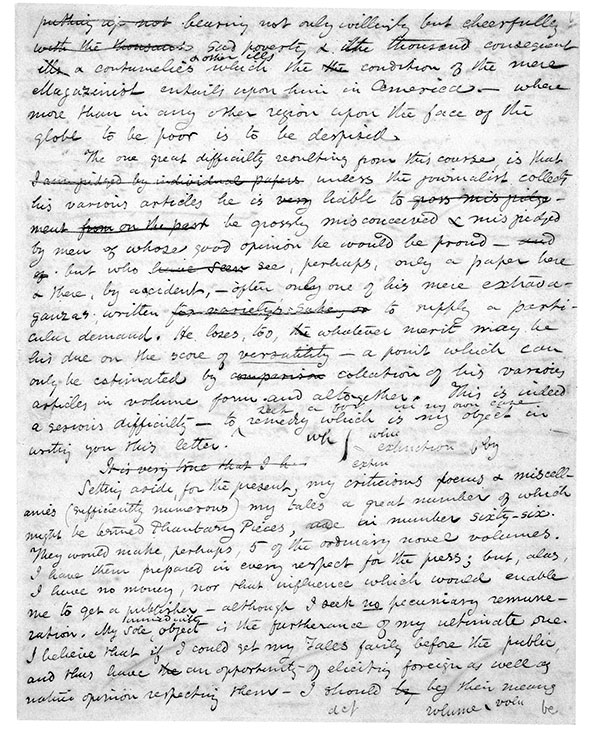 putting up not bearing not only willingly but cheerfully
with the thousand sad poverty & the thousand consequent
& other ills
ills & contumelies which the the condition of the mere
Magazinist entails upon him in America — where
more than in any other region upon the face of the
globe to be poor is to be despised.
The one great difficulty resulting from this course is that
I am judged by individual papers unless the journalist collects
his various articles he is very liable to gross misjudge-
ment from on the part be grossly misconceived & misjudged
by men of whose good opinion he would be proud — and
but who have seen see, perhaps, only a paper here
& there, by accident, — often only one of his mere extrava-
ganzas, written for variety's sake, or to supply a parti-
cular demand. He loses, too, whatever merit may be
his due on the score of versatility — a point which can
only be estimated by comparison collection of his various
articles in volume form and altogether. This is indeed
a serious difficulty — to remedy which is my object in
in my own case
writing you this letter.
extinction by
It is very true that I h
Setting aside, for the present, my criticisms, poems & miscell-
anies (sufficiently numerous) my tales a great number of which
might be termed Phantasy Pieces, are in number sixty-six.
They would make, perhaps, 5 of the ordinary novel volumes.
I have them prepared in every respect for the press; but, alas,
I have no money, nor that influence which would enable
me to get a publisher — although I seek no pecuniary remune-
immediate
ration. My sole object is the furtherance of my ultimate one.
I believe that if I could get my Tales fairly before the public,
and thus have the an opportunity of eliciting foreign as well as
native opinion respecting them — I should by their means
act volume volu be